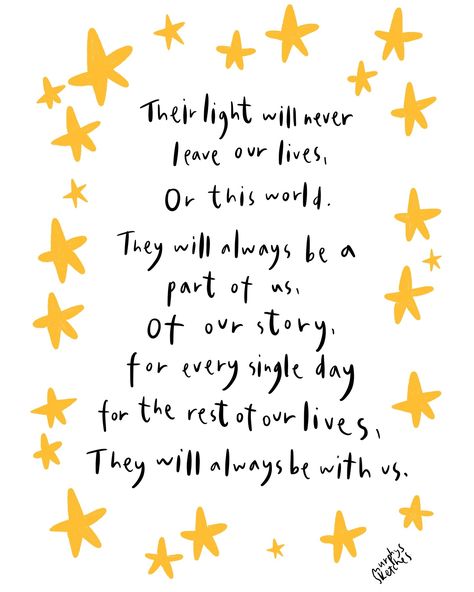 Their light will never
leave our lives,
Or this world.
They will always be a
part of us,
Of our story,
for every single day
for the rest of our lives,
They will always be with us.
murphys
sketches